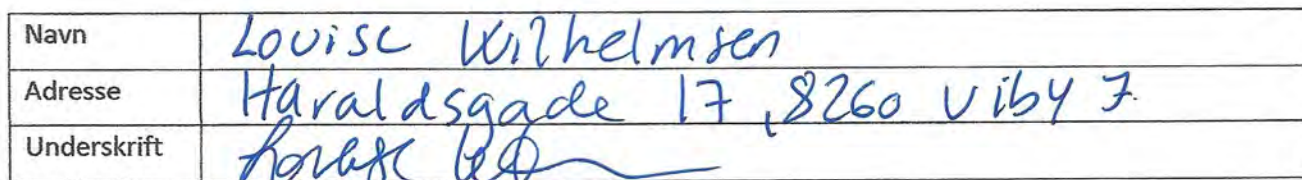 Navn Louise Wilhelmsen
Adresse Haraldsgade 17, 8260 Viby J.
Underskrift Louise